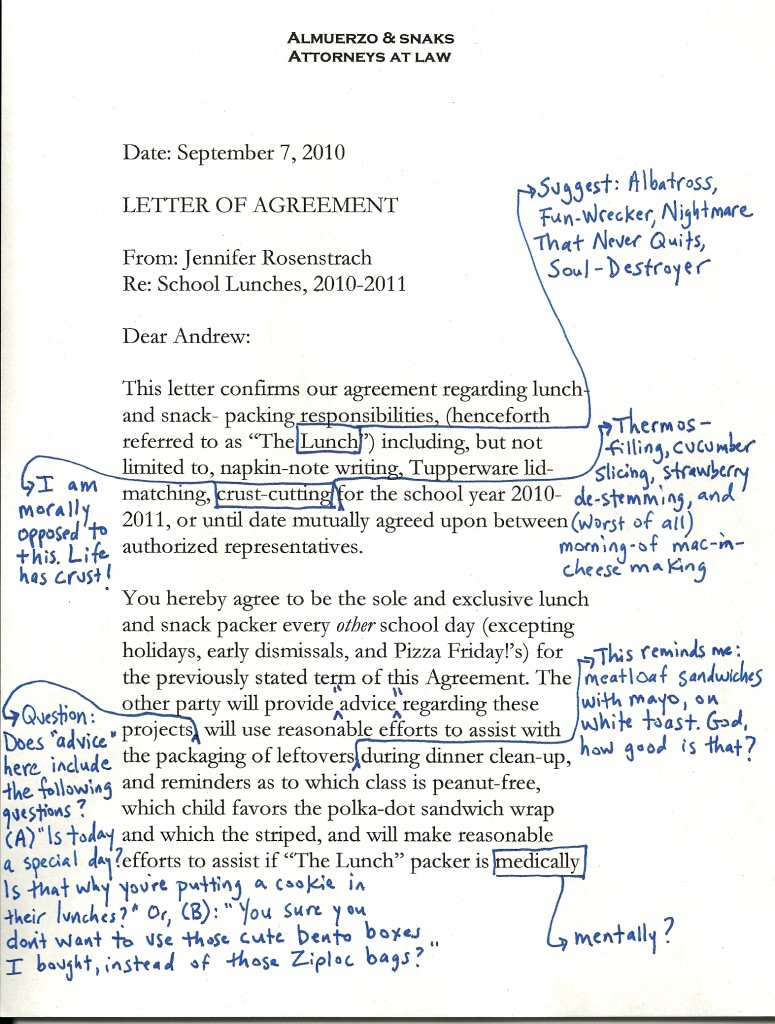 ALMUERZO & SNAKS
ATTORNEYS AT LAW
Date: September 7, 2010
LETTER OF AGREEMENT
From: Jennifer Rosenstrach
Re: School Lunches, 2010-2011
Dear Andrew:
This letter confirms our agreement regarding lunch-
and snack- packing responsibilities, (henceforth
referred to as “The Lunch”) including, but not
limited to, napkin-note writing, Tupperware lid-
matching, crust-cutting for the school year 2010-
2011, or until date mutually agreed upon between
authorized representatives.
You hereby agree to be the sole and exclusive lunch
and snack packer every other school day (excepting
holidays, early dismissals, and Pizza Friday!’s) for
the previously stated term of this Agreement. The
other party will provide "advice" regarding these
projects, will use reasonable efforts to assist with
the packaging of leftovers during dinner clean-up,
and reminders as to which class is peanut-free,
which child favors the polka-dot sandwich wrap
and which the striped, and will make reasonable
efforts to assist if “The Lunch” packer is medically
Suggest: Albatross,
Fun-Wrecker, Nightmare
That Never Quits,
Soul-Destroyer
Thermos-
filling, cucumber
slicing, strawberry
de-stemming, and
(worst of all)
morning-of mac-in-
cheese making
I am
morally
opposed to
this. Life
has crust!
This reminds me:
meatloaf sandwiches
with mayo, on
white toast. God,
how good is that?
Question:
Does "advice"
here include
the following
questions?
(A) "Is today
a special day?
Is that why you're putting a cookie in
their lunches?" Or, (B): "You sure you
don't want to use those cute bento boxes
I bought, instead of those Ziploc bags?"
mentally?